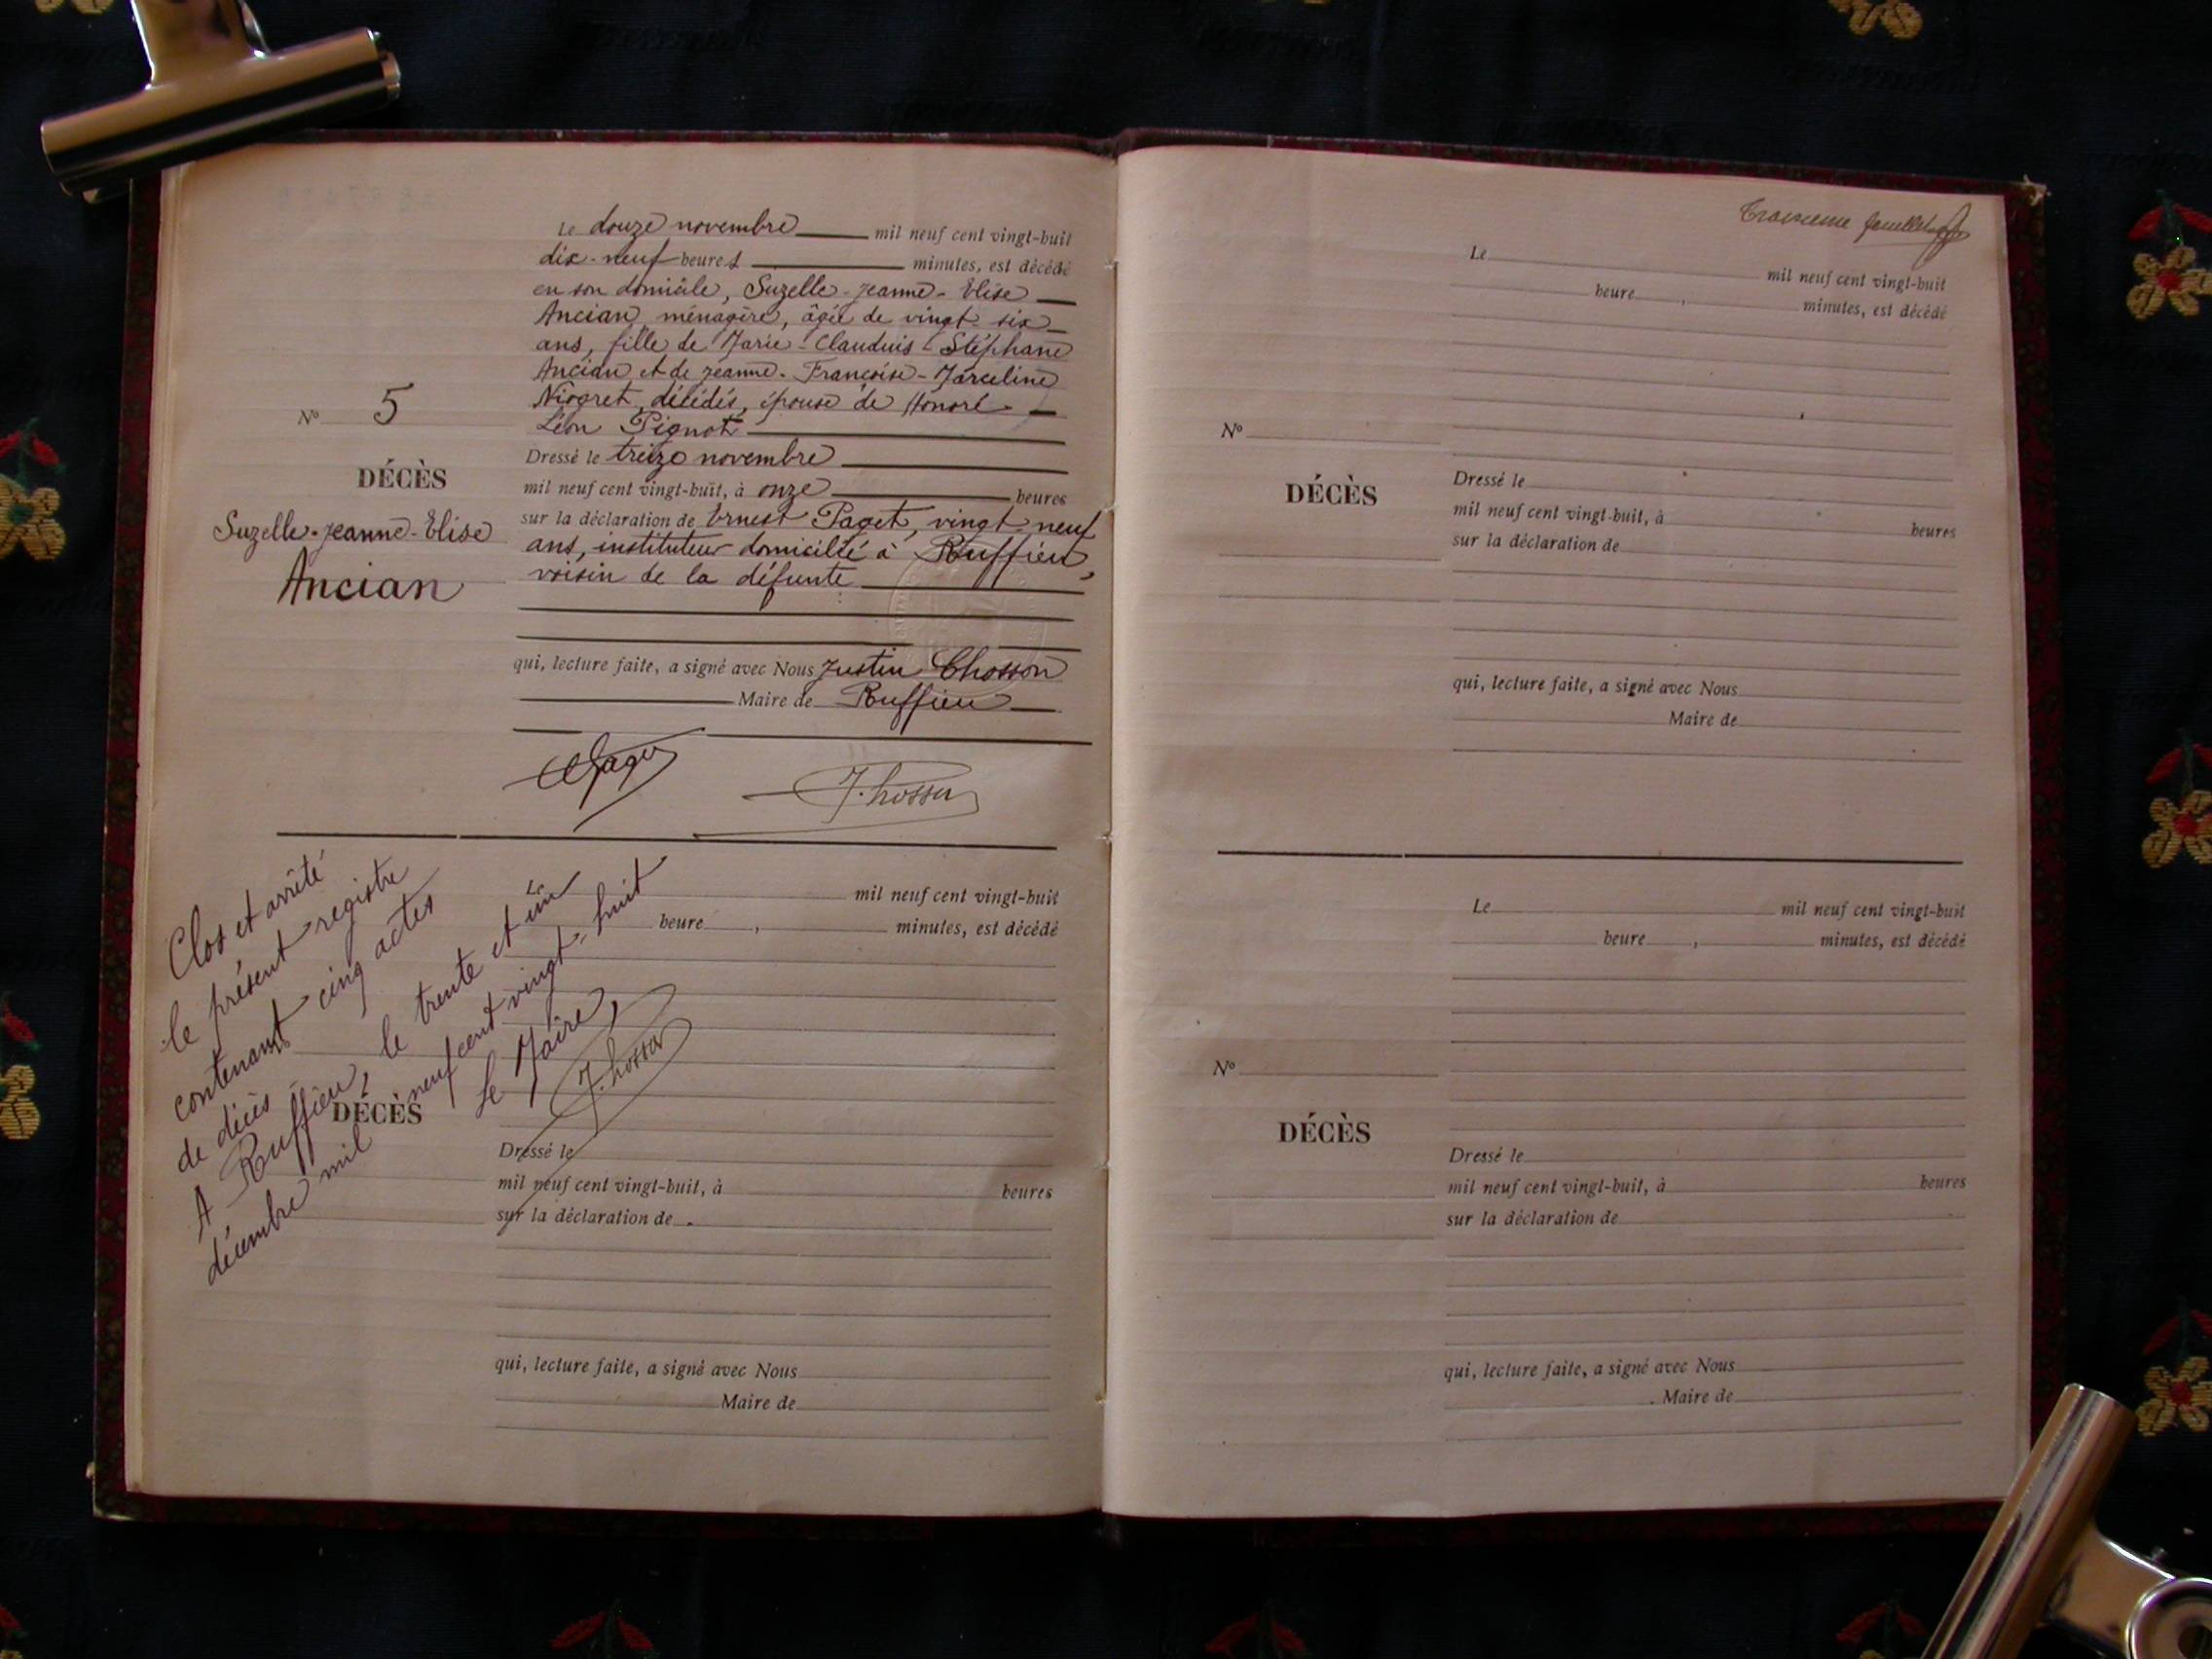 Le douze novembre mil neuf cent vingt-huit
dix-neuf heures minutes, est décédé
en son domicile, Suzelle-Jeanne-Elise
Ancian, ménagère, âgée de vingt-six
ans, fille de Marie-Claudius-Stéphane
Ancian et de Jeanne-Françoise-Marceline
Niogret, décédés, épouse de Honoré
Léon Pignot
Nº 5
DÉCÈS
Suzelle-Jeanne-Elise
Ancian
Dressé le treize novembre
mil neuf cent vingt-huit, à onze heures
sur la déclaration de Ernest Paget, vingt-neuf
ans, instituteur domicilié à Ruffieu,
voisin de la défunte
qui, lecture faite, a signé avec Nous Justin Chosson
Maire de Ruffieu
J. Chosson
Clos et arrêté
le présent registre
contenant cinq actes
de décès
A Ruffieu, le trente et un
décembre mil neuf cent vingt-huit
Le Maire,
J. Chosson
Le mil neuf cent vingt-huit
heure , minutes, est décédé
DÉCÈS
Dressé le
mil neuf cent vingt-huit, à heures
sur la déclaration de
qui, lecture faite, a signé avec Nous
Maire de
Troisième feuillet
Le mil neuf cent vingt-huit
heure , minutes, est décédé
Nº
DÉCÈS
Dressé le
mil neuf cent vingt-huit, à heures
sur la déclaration de
qui, lecture faite, a signé avec Nous
Maire de
Le mil neuf cent vingt-huit
heure , minutes, est décédé
Nº
DÉCÈS
Dressé le
mil neuf cent vingt-huit, à heures
sur la déclaration de
qui, lecture faite, a signé avec Nous
Maire de